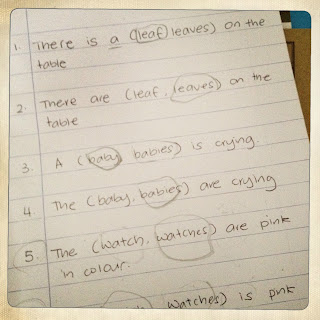 1. There is a (leaf leaves) on the
table
2. There are (leaf, leaves) on the
table
3. A (baby babies) is crying.
4. The (baby, babies) are crying
5. The (watch, watches) are pink
in colour.
watches) is pink